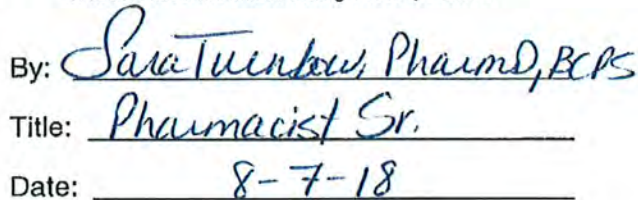 By: Sara Turnbow, PharmD, BCPS
Title: Pharmacist Sr.
Date: 8-7-18